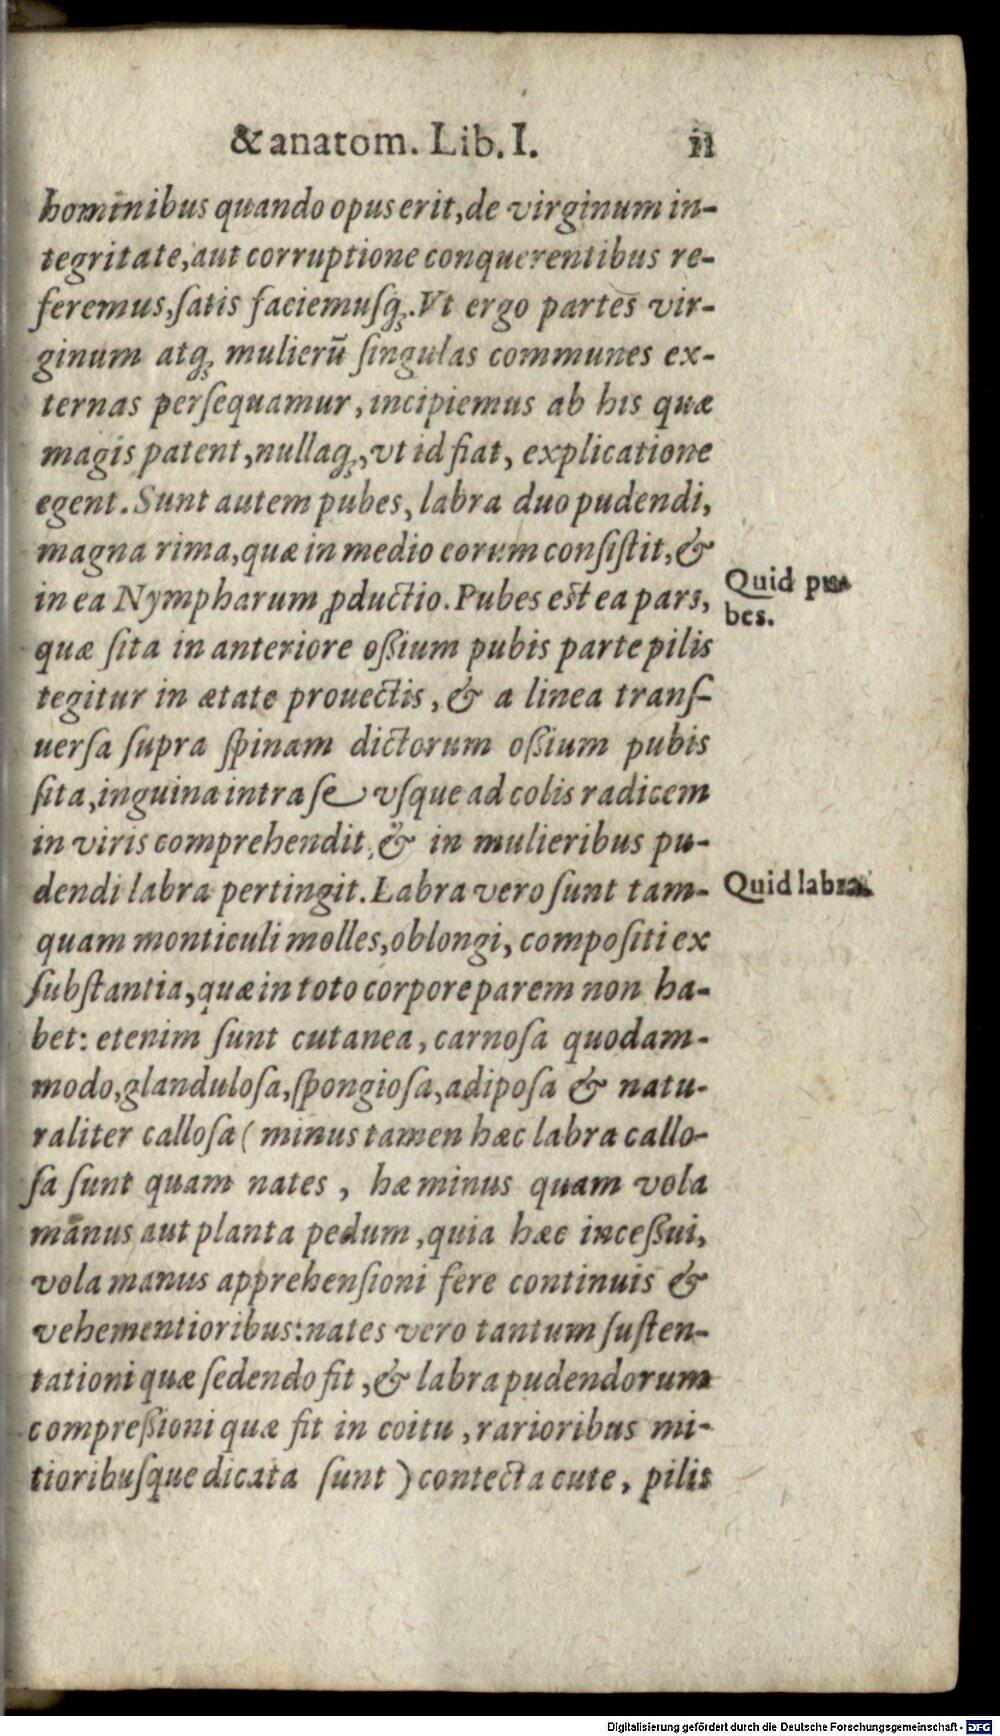 & anatom. Lib. I. 11
hominibus quando opus erit, de virginum in-
tegritate, aut corruptione conquerentibus re-
feremus, ſatis faciemuſq;. Vt ergo partes vir-
ginum atq; mulierū ſingulas communes ex-
ternas perſequamur, incipiemus ab his quæ
magis patent, nullaq;, vt id fiat, explicatione
egent. Sunt autem pubes, labra duo pudendi,
magna rima, quæ in medio eorum conſiſtit, &
in ea Nympharum ꝓductio. Pubes est ea pars,
Quid pu-
bes.
quæ ſita in anteriore oßium pubis parte pilis
tegitur in ætate prouectis, & a linea tranſ-
uerſa ſupra ſpinam dictorum oßium pubis
ſita, inguina intra ſe vſque ad colis radicem
in viris comprehendit, & in mulieribus pu-
dendi labra pertingit. Labra vero ſunt tam-
Quid labra.
quam monticuli molles, oblongi, compoſiti ex
ſubſtantia, quæ in toto corpore parem non ha-
bet: etenim ſunt cutanea, carnoſa quodam-
modo, glanduloſa, ſpongioſa, adipoſa & natu-
raliter calloſa ( minus tamen hæc labra callo-
ſa ſunt quam nates, hæ minus quam vola
manus aut planta pedum, quia hæc inceßui,
vola manus apprehenſioni fere continuis &
vehementioribus: nates vero tantum ſuſten-
tationi quæ ſedendo fit, & labra pudendorum
compreßioni quæ fit in coitu, rarioribus mi-
tioribuſque dicata ſunt ) contecta cute, pilis
Digitalisierung gefördert durch die Deutsche Forschungsgemeinschaft - DFG